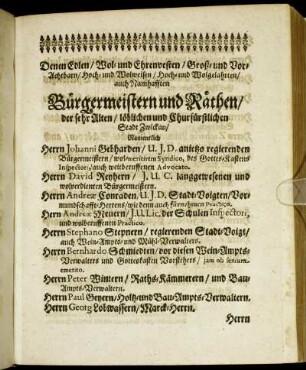 Denen Edlen / Wol- und Ehrenvesten / Groß- und Vor-
Achtbarn / Hoch- und Wolweisen / Hoch- und Wolgelahrten /
auch Namhafften
Bürgermeistern und Räthen /
der sehr Alten / löblichen und Churfürstlichen
Stadt Zwickau /
Namentlich
Herrn Johanni Gebharden / U. J. D. anietzo regierenden
Bürgermeistern / wolmeritirten Syndico, des Gottes-Kastens
Inspectori / auch weitberuffenen Advocato.
Herrn David Reyhern / J. U. C. langgewesenen und
wolverdienten Bürgermeistern.
Herrn Andreæ Conraden, U. J. D. Stadt-Voigten / Vor-
mundschaffts-Herrens / wie denn auch fürnehmen Practico.
Herrn Andreæ 
Herrn Stephano Stepnern / regierenden Stadt-Voigt /
auch Wein-Ampts- und Verwalters.
Herrn Bernhardo Schmiedten / vor diesen Wein-Ampts-
Verwalters und Gotteskasten Vorstehers / jam ob senium
emerito.
Herrn Peter Wintern / Raths-Kämmerern / und Bau-
Ampts-Verwaltern.
Herrn Paul Geyern / Holtz- und Bau-Ampts-Verwaltern.
Herrn Georg Lobwassern / Marck-Herrn.
Herrn